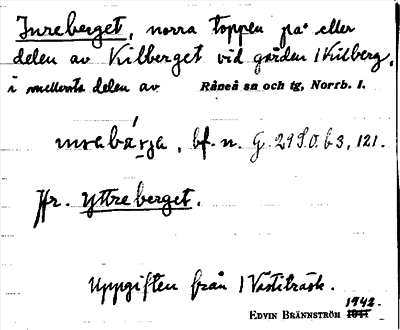 Inreberget, norra toppen på eller
delen av Kilberget vid gården 1 Kilberg,
i mellersta delen av Råneå sn och tg, Norrb. l.
bf. n. G 29 S.O. b 3, 121.
Jfr. Yttreberget.
Uppgiften från 1 Västiträsk.
1942.
EDVIN BRÄNNSTRÖM 1941